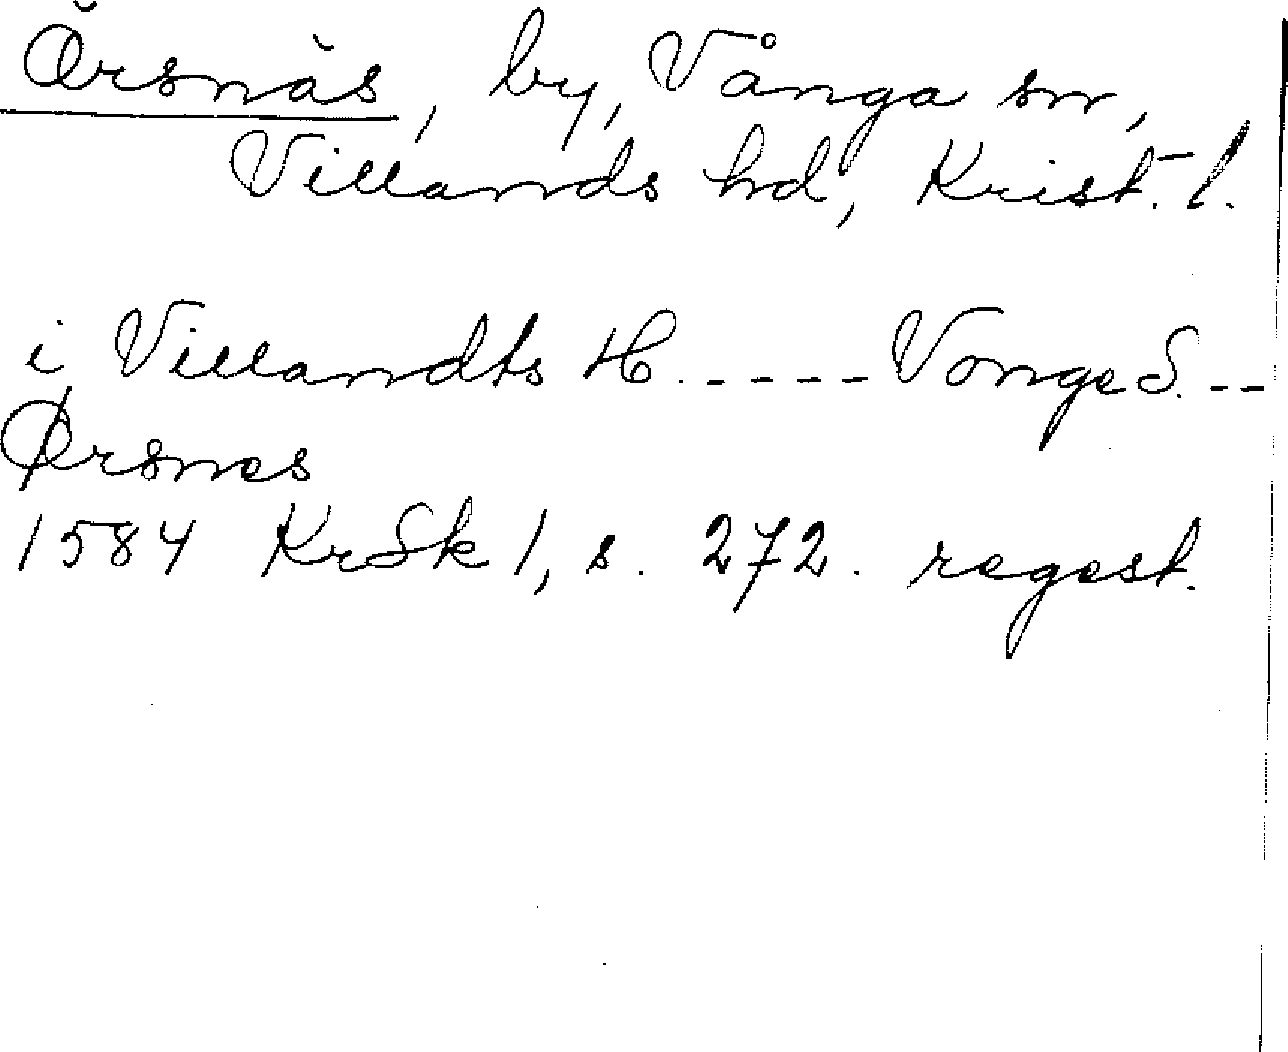 Örsnäs, by, Vånga sn,
Villands hd, Krist. l.
i Villandts H. ----- Vonge S. --
Ørsnes
1584 KrSk 1, s. 272. regest.